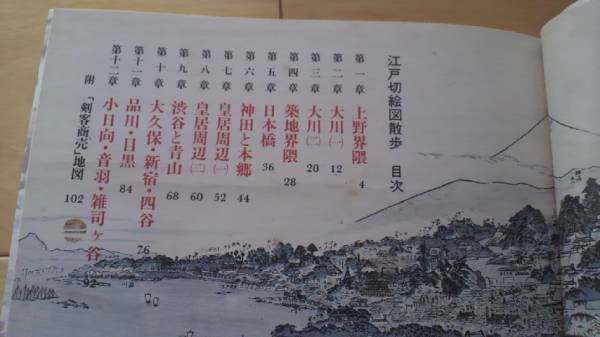 江戸切絵図散歩 目次
第一章 上野界隈 4
第二章 大川(一) 12
第三章 大川(二) 20
第四章 築地界隈 28
第五章 日本橋 36
第六章 神田と本郷 44
第七章 皇居周辺(一) 52
第八章 皇居周辺(二) 60
第九章 渋谷と青山 68
第十章 大久保・新宿・四谷 76
第十一章 品川・目黒 84
第十二章 小日向・音羽・雑司ヶ谷 92
附 「剣客商売」地図 102